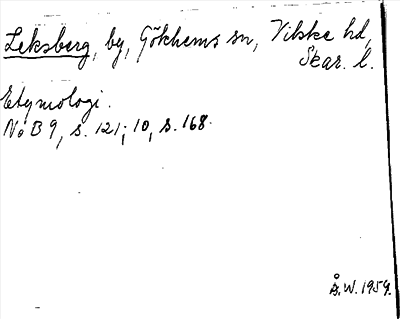 Leksberg, by, Gökhems sn, Vilske hd,
Skar. l.
Etymologi.
NoB 9, s. 121; 10, s. 168.
Å.W. 1959.